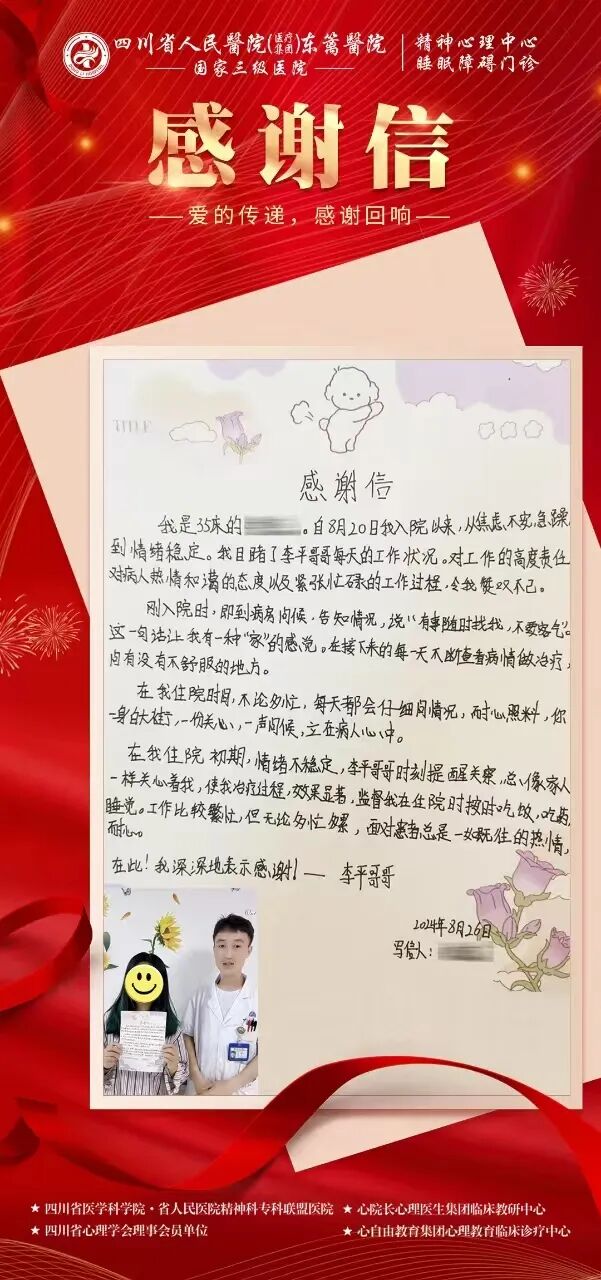 四川省人民醫院(医疗集团)东篱醫院
国家三级医院
精神心理中心
睡眠障碍门诊
感谢信
爱的传递，感谢回响
TITLE
感谢信
我是35床的
。自8月20日我入院以来，从焦虑不安，急躁
到情绪稳定。我目睹了李平哥哥每天的工作状况。对工作的高度责任
对病人热情和蔼的态度以及紧张忙碌的工作过程，令我赞叹不已。
刚入院时，即到病房问候，告知情况，说"有事随时找我，不要客气"。
这一句话让我有一种"家"的感觉。在接下来的每一天不断查看病情做治疗，
问有没有不舒服的地方。
在我住院时目，不论多忙，每天都会仔细问情况，耐心照料，你
一身白大街，一份关心，一声问候，立在病人心中。
在我住院初期，情绪不稳定，李平哥哥时刻提醒关察，总像家人
一样关心着我，使我治疗过程，效果显著，监督我在住院时按时吃饭，吃药
睡觉。工作比较繁忙，但无论多忙多累，面对患者总是一如既往的热情，
耐心。
在此！我深深地表示感谢！—— 李平哥哥
2024年8月26日
写信人：
★ 四川省医学科学院·省人民医院精神科专科联盟医院
★ 心院长心理医生集团临床教研中心
★ 四川省心理学会理事会员单位
★ 心自由教育集团心理教育临床诊疗中心